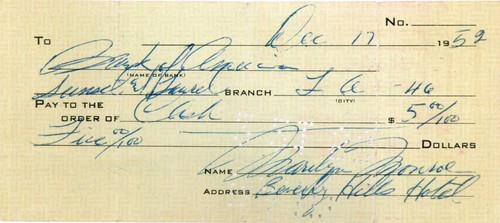 No.
Dec 17 1952
To Bank of America
(NAME OF BANK)
Sunset & Laurel BRANCH L A - 46
(CITY)
PAY TO THE
ORDER OF Cash $ 5 00/100
Five 00/100 DOLLARS
NAME Marilyn Monroe
ADDRESS Beverly Hills Hotel